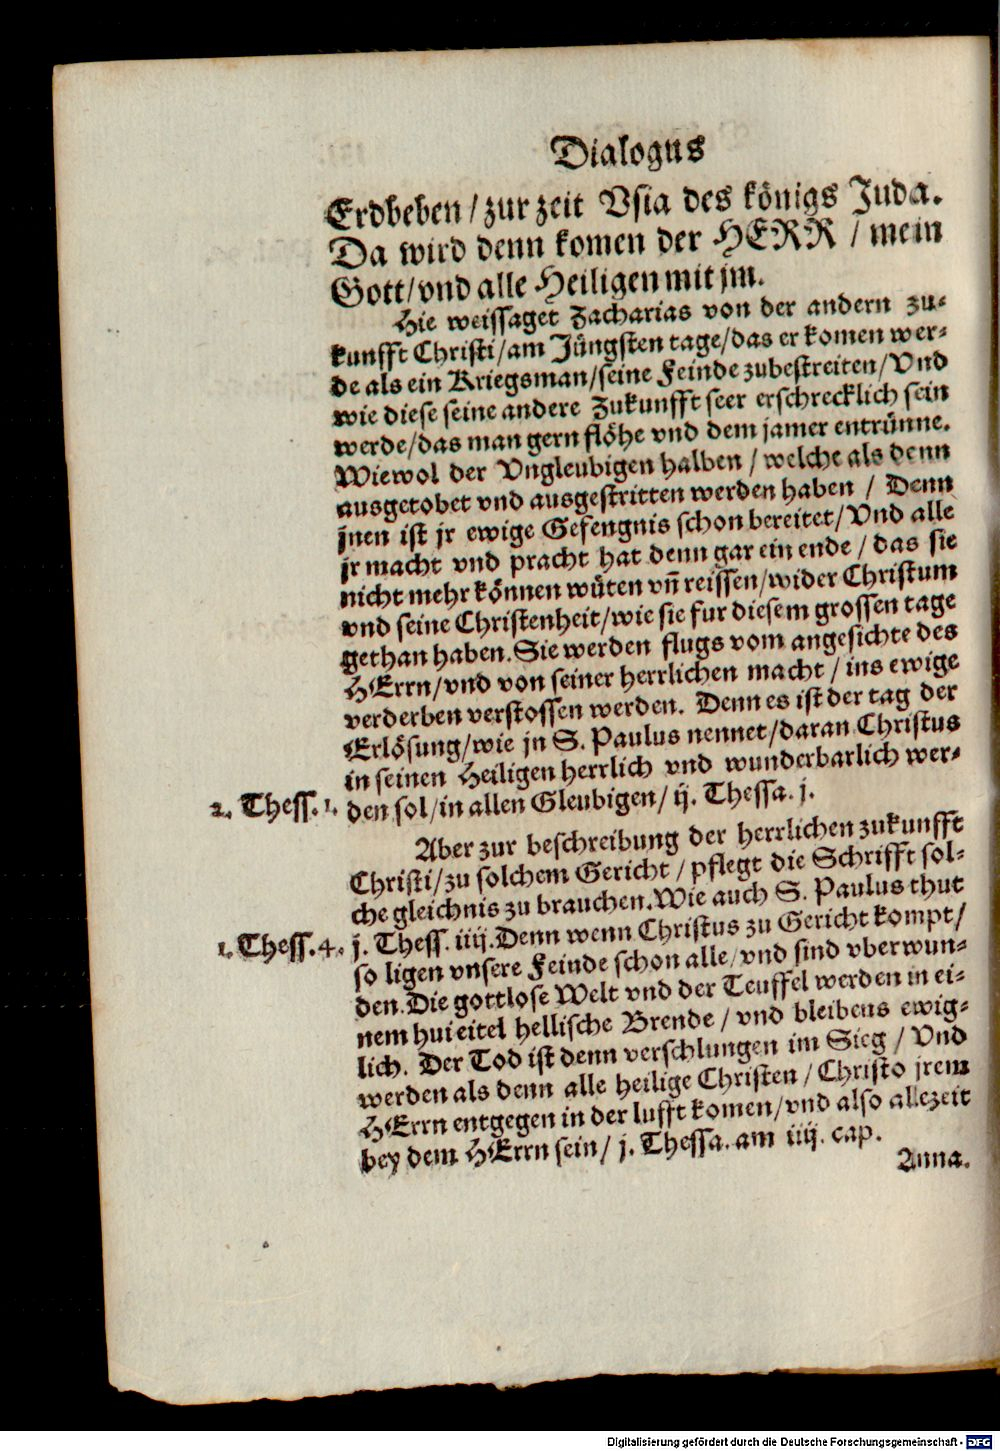 Dialogus
Erdbeben / zur zeit Vsia des königs Juda.
Da wird denn komen der HERR / mein
Gott / vnd alle Heiligen mit jm.
Hie weissaget Zacharias von der andern zu-
kunfft Christi / am Jüngsten tage / das er komen wer-
de als ein Kriegsman / seine Feinde zubestreiten / Vnd
wie diese seine andere Zukunfft seer erschrecklich sein
werde / das man gern flöhe vnd dem jamer entrünne.
Wiewol der Vngleubigen halben / welche als denn
ausgetobet vnd ausgestritten werden haben / Denn
jnen ist jr ewige Gefengnis schon bereitet / Vnd alle
jr macht vnd pracht hat denn gar ein ende / das sie
nicht mehr können wüten vñ reissen / wider Christum
vnd seine Christenheit / wie sie fur diesem grossen tage
gethan haben. Sie werden flugs vom angesichte des
HErrn / vnd von seiner herrlichen macht / ins ewige
verderben verstossen werden. Denn es ist der tag der
Erlösung / wie jn S. Paulus nennet / daran Christus
in seinen Heiligen herrlich vnd wunderbarlich wer-
2. Thess. 1. den sol / in allen Gleubigen / ij. Thessa. j.
Aber zur beschreibung der herrlichen zukunfft
Christi / zu solchem Gericht / pflegt die Schrifft sol-
che gleichnis zu brauchen. Wie auch S. Paulus thut
1. Thess. 4. j. Thess. iiij. Denn wenn Christus zu Gericht kompt /
so ligen vnsere Feinde schon alle / vnd sind vberwun-
den. Die gottlose Welt vnd der Teuffel werden in ei-
nem hui eitel hellische Brende / vnd bleibens ewig-
lich. Der Tod ist denn verschlungen im Sieg / Vnd
werden als denn alle heilige Christen / Christo jrem
HErrn entgegen in der lufft komen / vnd also allezeit
bey dem HErrn sein / j. Thessa. am iiij. cap.
Anna.
Digitalisierung gefördert durch die Deutsche Forschungsgemeinschaft - DFG